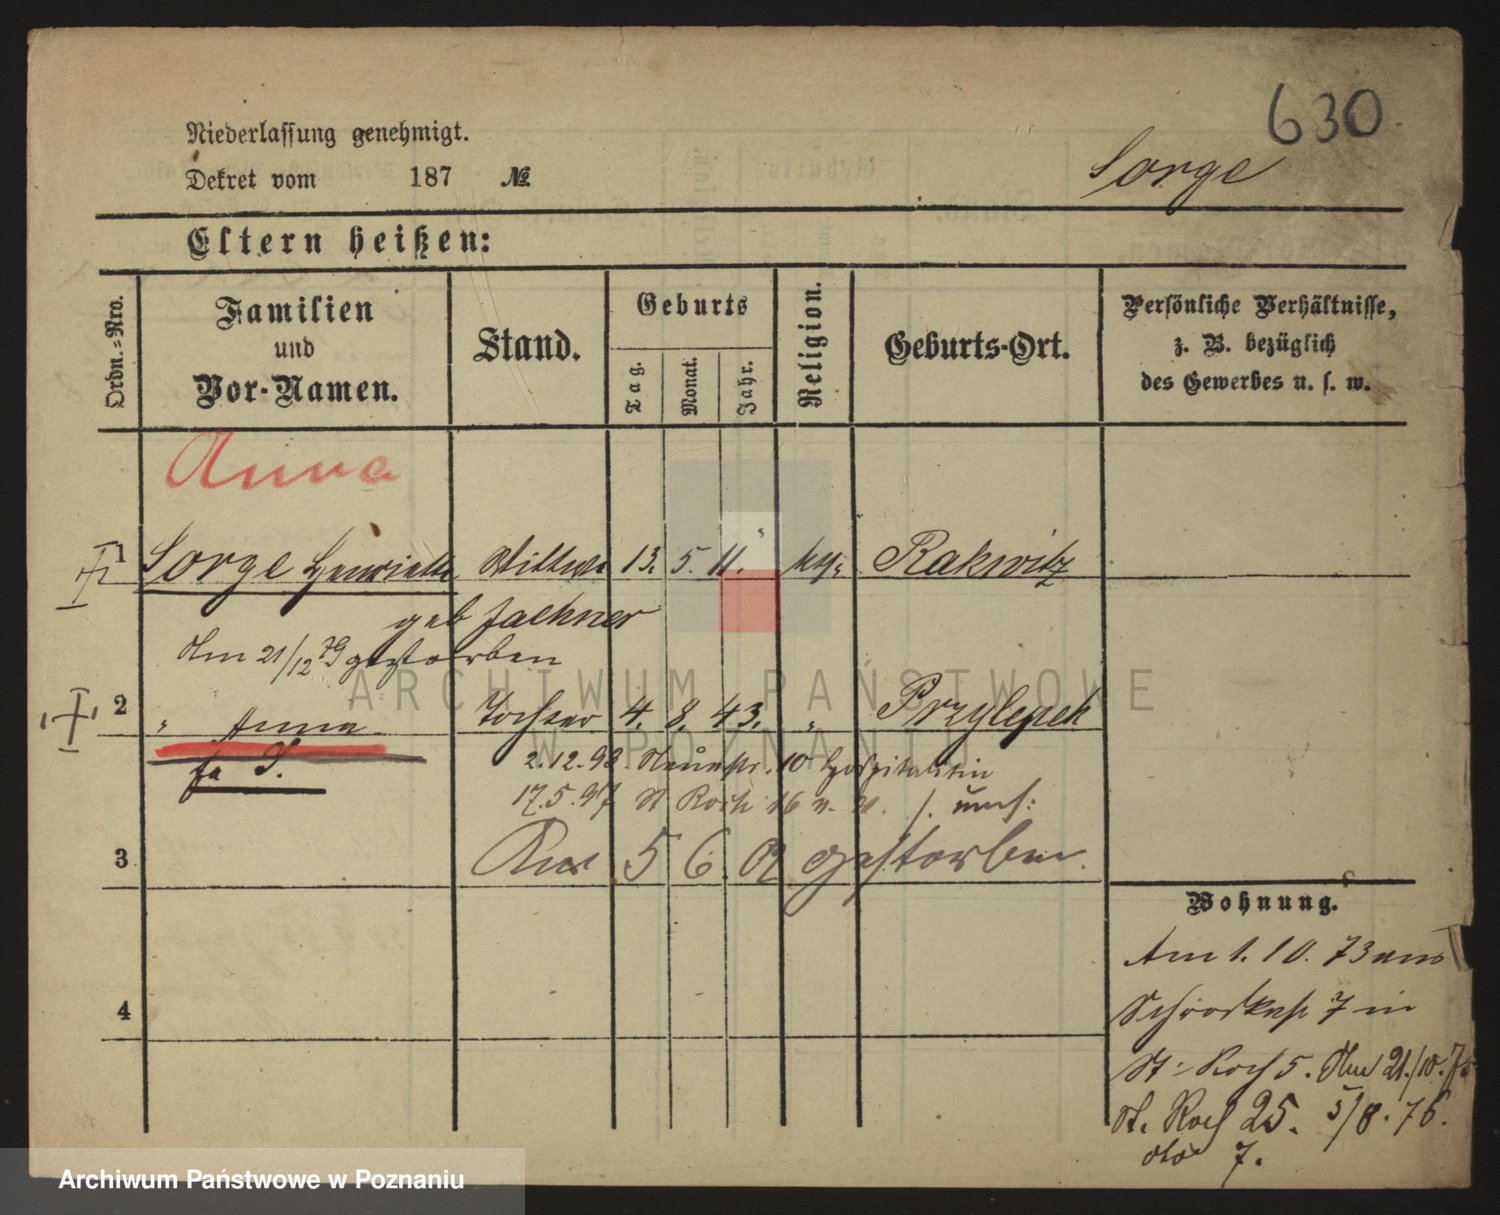 630
Niederlassung genehmigt.
Dekret vom 187 №
Sorge
Eltern heißen:
Ordn.-Nro.
Familien und Vor-Namen.
Stand.
Geburts
Tag.
Monat.
Jahr.
Religion.
Geburts-Ort.
Persönliche Verhältnisse,
z. B. bezüglich
des Gewerbes u. s. w.
Anna
1 Sorge Henriette Wittwe 13. 5. 11. Rakwitz
geb Jaehner
Am 21/12 79 gestorben
2 " Anna Tochter 4. 8. 43. " Przylepek
2.12.92 10 Hospitalitin
S.
17.5.97 St Roch 16
3 5 6 02 gestorben
Wohnung.
Am 1. 10. 73 aus
4
7 in
St. Roch 5. Am 21./10. 75
St. Roch 25. 5/8. 76.
dto 7.
ARCHIWUM PAŃSTWOWE
W POZNANIU
Archiwum Państwowe w Poznaniu